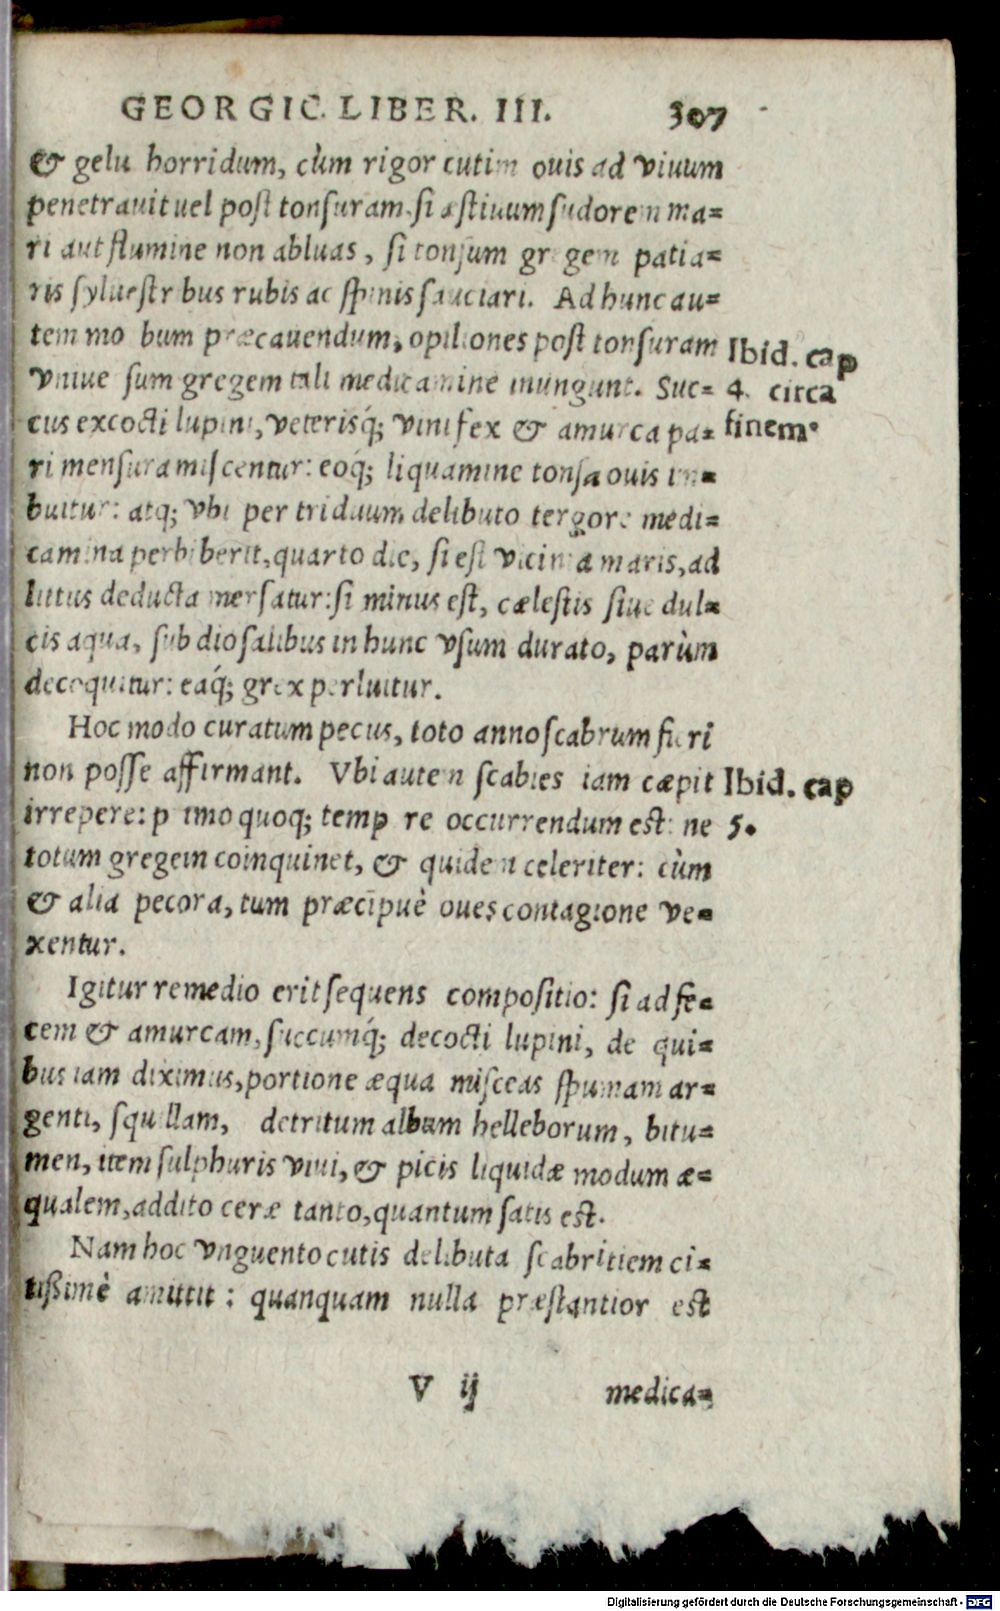 GEORGIC. LIBER. III. 307
& gelu horridum, cùm rigor cutim ouis ad viuum
penetrauit uel post tonsuram, si æstiuum sudorem ma=
ri aut flumine non abluas, si tonsum gregem patia=
ris syluestr bus rubis ac spinis sauciari. Ad hunc au=
tem mo bum præcauendum, opiliones post tonsuram
vniue sum gregem tali medicamine inungunt. Suc=
cus excocti lupini, veterisq́; vini fex & amurca pa=
ri mensura miscentur: eoq́; liquamine tonsa ouis im=
buitur: atq; vbi per triduum delibuto tergore medi=
camina perbiberit, quarto die, si est vicinia maris, ad
littus deducta mersatur: si minus est, cælestis siue dul=
cis aqua, sub dio salibus in hunc vsum durato, parùm
decoquitur: eaq́; grex perluitur.
Ibid. cap
4. circa
finem.
Hoc modo curatum pecus, toto anno scabrum fieri
non posse affirmant. Vbi autem scabies iam cæpit
irrepere: p imo quoq; temp re occurrendum est: ne
totum gregem coinquinet, & quidem celeriter: cùm
& alia pecora, tum præcipuè oues contagione ve=
xentur.
Ibid. cap
5.
Igitur remedio erit sequens compositio: si ad fe=
cem & amurcam, succumq́; decocti lupini, de qui=
bus iam diximus, portione æqua misceas spumam ar=
genti, squillam, detritum album helleborum, bitu=
men, item sulphuris viui, & picis liquidæ modum æ=
qualem, addito ceræ tanto, quantum satis est.
Nam hoc vnguento cutis delibuta scabritiem ci=
tißimè amittit: quanquam nulla præstantior est
V ij medica=
Digitalisierung gefördert durch die Deutsche Forschungsgemeinschaft - DFG